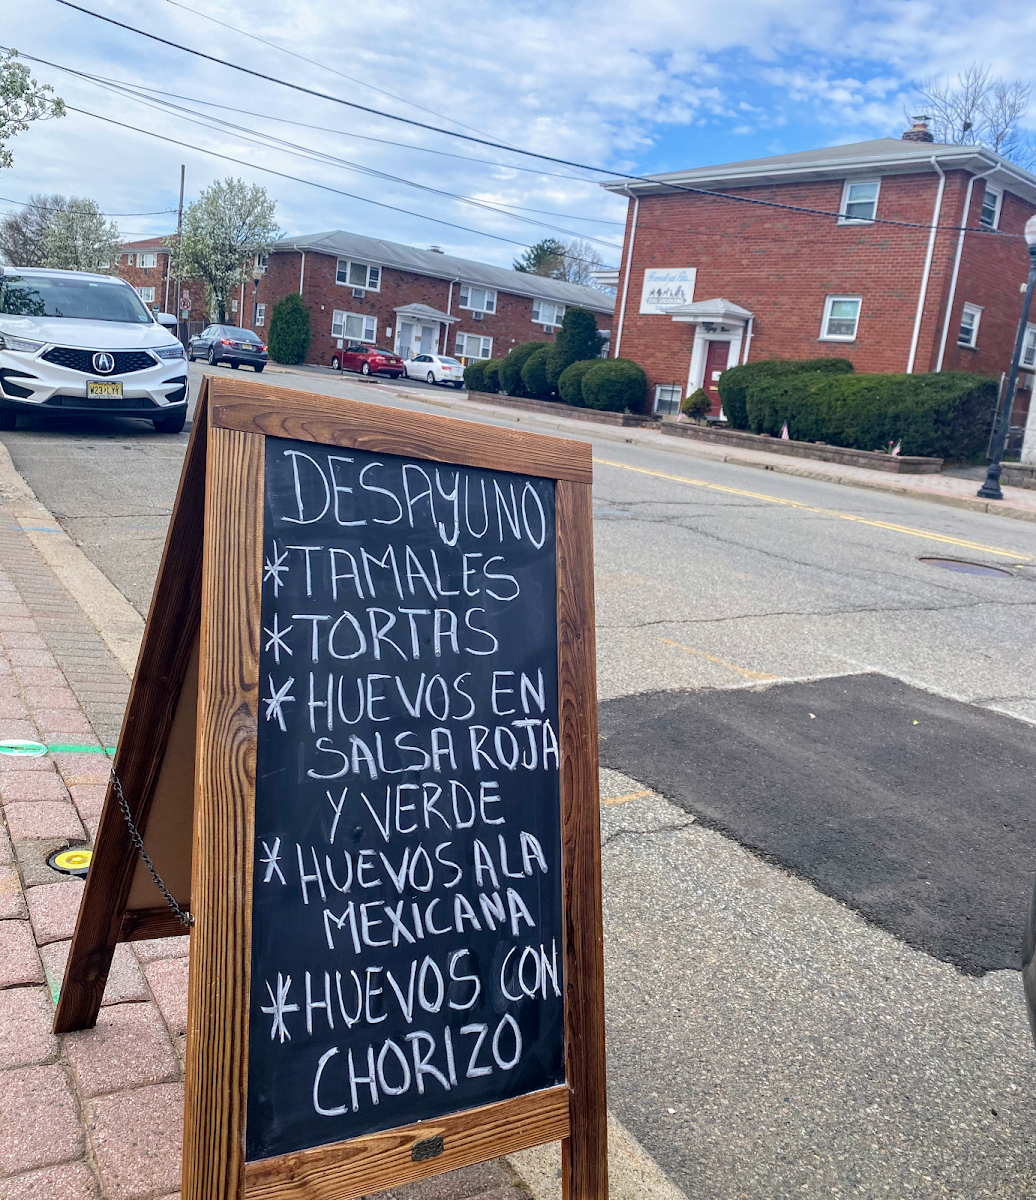 DESAYUNO
*TAMALES
*TORTAS
*HUEVOS EN
SALSA ROJA
Y VERDE
*HUEVOS A LA
MEXICANA
*HUEVOS CON
CHORIZO